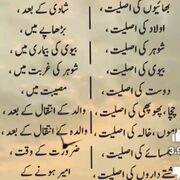 بھائیوں کی اصلیت ، شادی کے بعد ،
اولاد کی اصلیت ، بڑھاپے میں ،
شوہر کی اصلیت ، بیوی کی بیماری میں ،
بیوی کی اصلیت ، شوہر کی غربت میں ،
دوست کی اصلیت ، مصیبت میں ،
چچا، پھوپھی کی اصلیت ، والد کے انتقال کے بعد ،
ماموں، خالہ کی اصلیت ، والدہ کے انتقال کے بعد ،
ہمسائے کی اصلیت ، ضرورت کے وقت ،
رشتے داروں کی اصلیت ، امیر ہونے کے